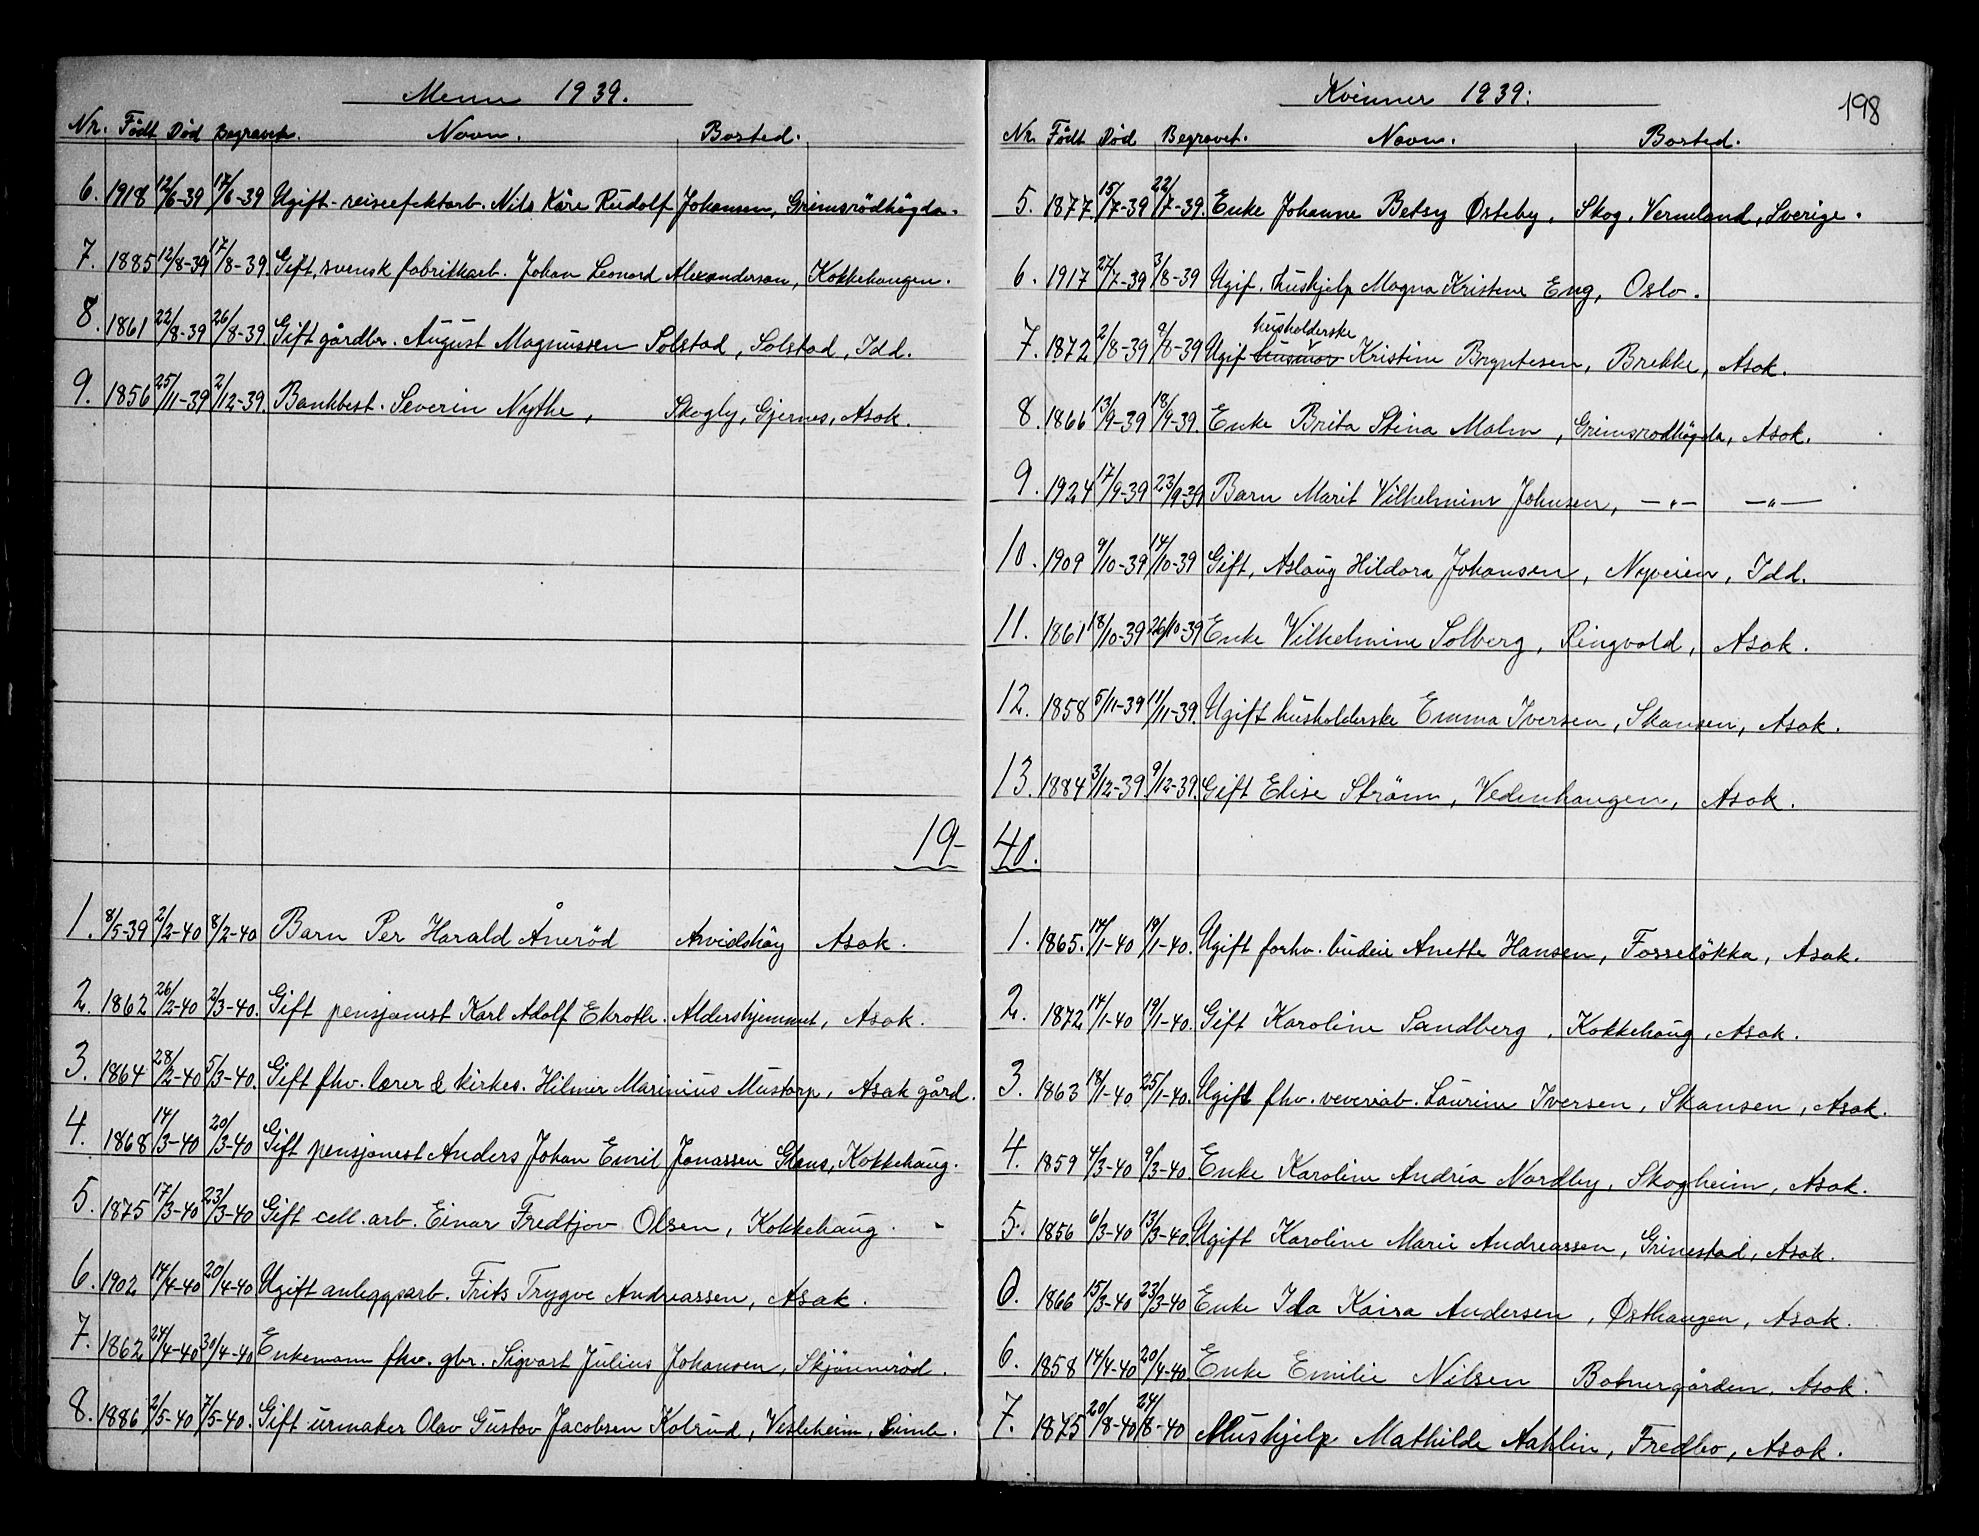 Menn 1939.
Nr. Født Død Begravet. Navn. Bosted.
6. 1918 12/6-39 17/6-39 Ugift - reiseefektarb. Nils Kåre Rudolf Johansen, Grimsrödhögda.
7. 1885 12/8-39 17/8-39. Gift, svensk fabrikkarb. Johan Leonard Alexanderson, Kokkehaugen.
8. 1861 22/8-39 26/8-39 Gift gårdbr. August Magnussen Solstad, Solstad, Idd.
9. 1856 25/11-39 2/12-39. Bankbest. Severin Nythe, Skogly, Gjernes, Asak.
19-
1. 8/5-39 2/2-40 8/2-40 Barn Per Harald Åneröd Arvidshöy Asak.
2. 1862 26/2-40 2/3-40. Gift pensjonist Karl Adolf Ekroth. Aldershjemmet, Asak.
3. 1864 28/2-40 5/3-40. Gift fhv. lærer & kirkes. Hilmer Marinius Mustorp, Asak gård.
4. 1868 14/3-40 20/3-40 Gift pensjonist Anders Johan Emil Jonassen Glans, Kokkehaug.
5. 1875 17/3-40 23/3-40 Gift cell. arb. Einar Fredtjov Olsen, Kokkehaug.
6. 1902 14/4-40 20/4-40 Ugift anleggsarb. Frits Trygve Andreassen, Asak.
7. 1862 24/4-40 30/4-40 Enkemann fhv. gbr. Sigvart Julius Johansen, Skjönneröd.
8. 1886 2/5-40 7/5-40. Gift urmaker Olav Gustav Jacobsen Kolrud, Vesleheim,
Kvinner 1939:
198
Nr. Født Død Begravet. Navn. Bosted.
5. 1877 15/7-39 22/7-39. Enke Johanne Betsy Østeby, Skog, Vermland, Sverige.
6. 1917 27/7-39 3/8-39 Ugif. hushjelp Magna Kristine Eng, Oslo.
husholderske
7. 1872 2/8-39 9/8-39 Ugif husmor Kristine Bryntesen, Brekke, Asak.
8. 1866 13/9-39 18/9-39. Enke Brita Stina Malm, Grimsrodhögda, Asak.
9. 1924 17/9-39 23/9-39 Barn Marit Vilhelmine Johnsen, —"— —"—
10. 1909 9/10-39 14/10-39 Gift, Aslaug Hildora Johansen, Nyveien, Idd.
11. 1861 18/10-39 26/10-39 Enke Vilhelmine Solberg, Ringvold, Asak.
12. 1858 5/11-39 11/11-39. Ugift husholderske Emma Iversen, Skansen, Asak.
13. 1884 3/12-39 9/12-39. Gift Elise Ström, Vedenhaugen, Asak.
40.
1. 1865. 14/1-40 19/1-40. Ugift forhv. budeie Anette Hansen, Fosselökka, Asak.
2. 1872 14/1-40 19/1-40. Gift Karoline Sandberg, Kokkehaug, Asak.
3. 1863 18/1-40 25/1-40. Ugift fhv. veveriab. Laurine Iversen, Skansen, Asak.
4. 1859 4/3-40 9/3-40. Enke Karoline Andria Nordby, Skogheim, Asak.
5. 1856 6/3-40 13/3-40. Ugift Karoline Marie Andreassen, Grinestad, Asak.
0. 1866 15/3-40 23/3-40 Enke Ida Kaisa Andersen, Østhaugen, Asak.
6. 1858 14/4-40 20/4-40. Enke Emilie Nilsen Botnergården, Asak.
7. 1875 20/8-40 24/8-40 Hushjelp Mathilde Aahlin, Fredbo, Asak.